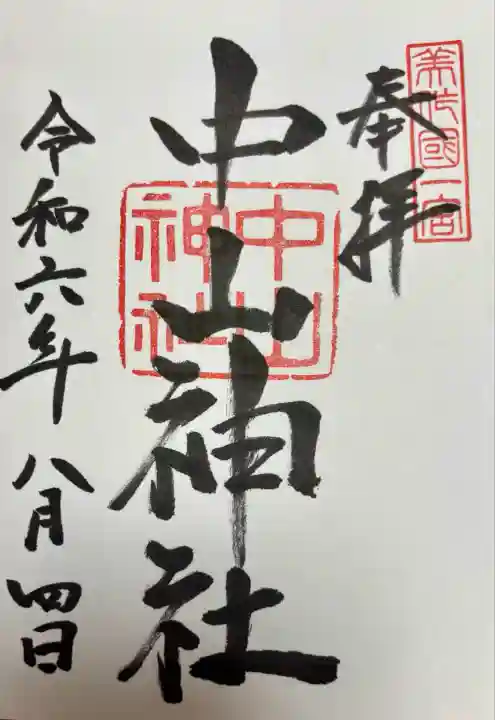 奉拝
美作國一宮
中山神社
中山神社
令和六年 八月四日